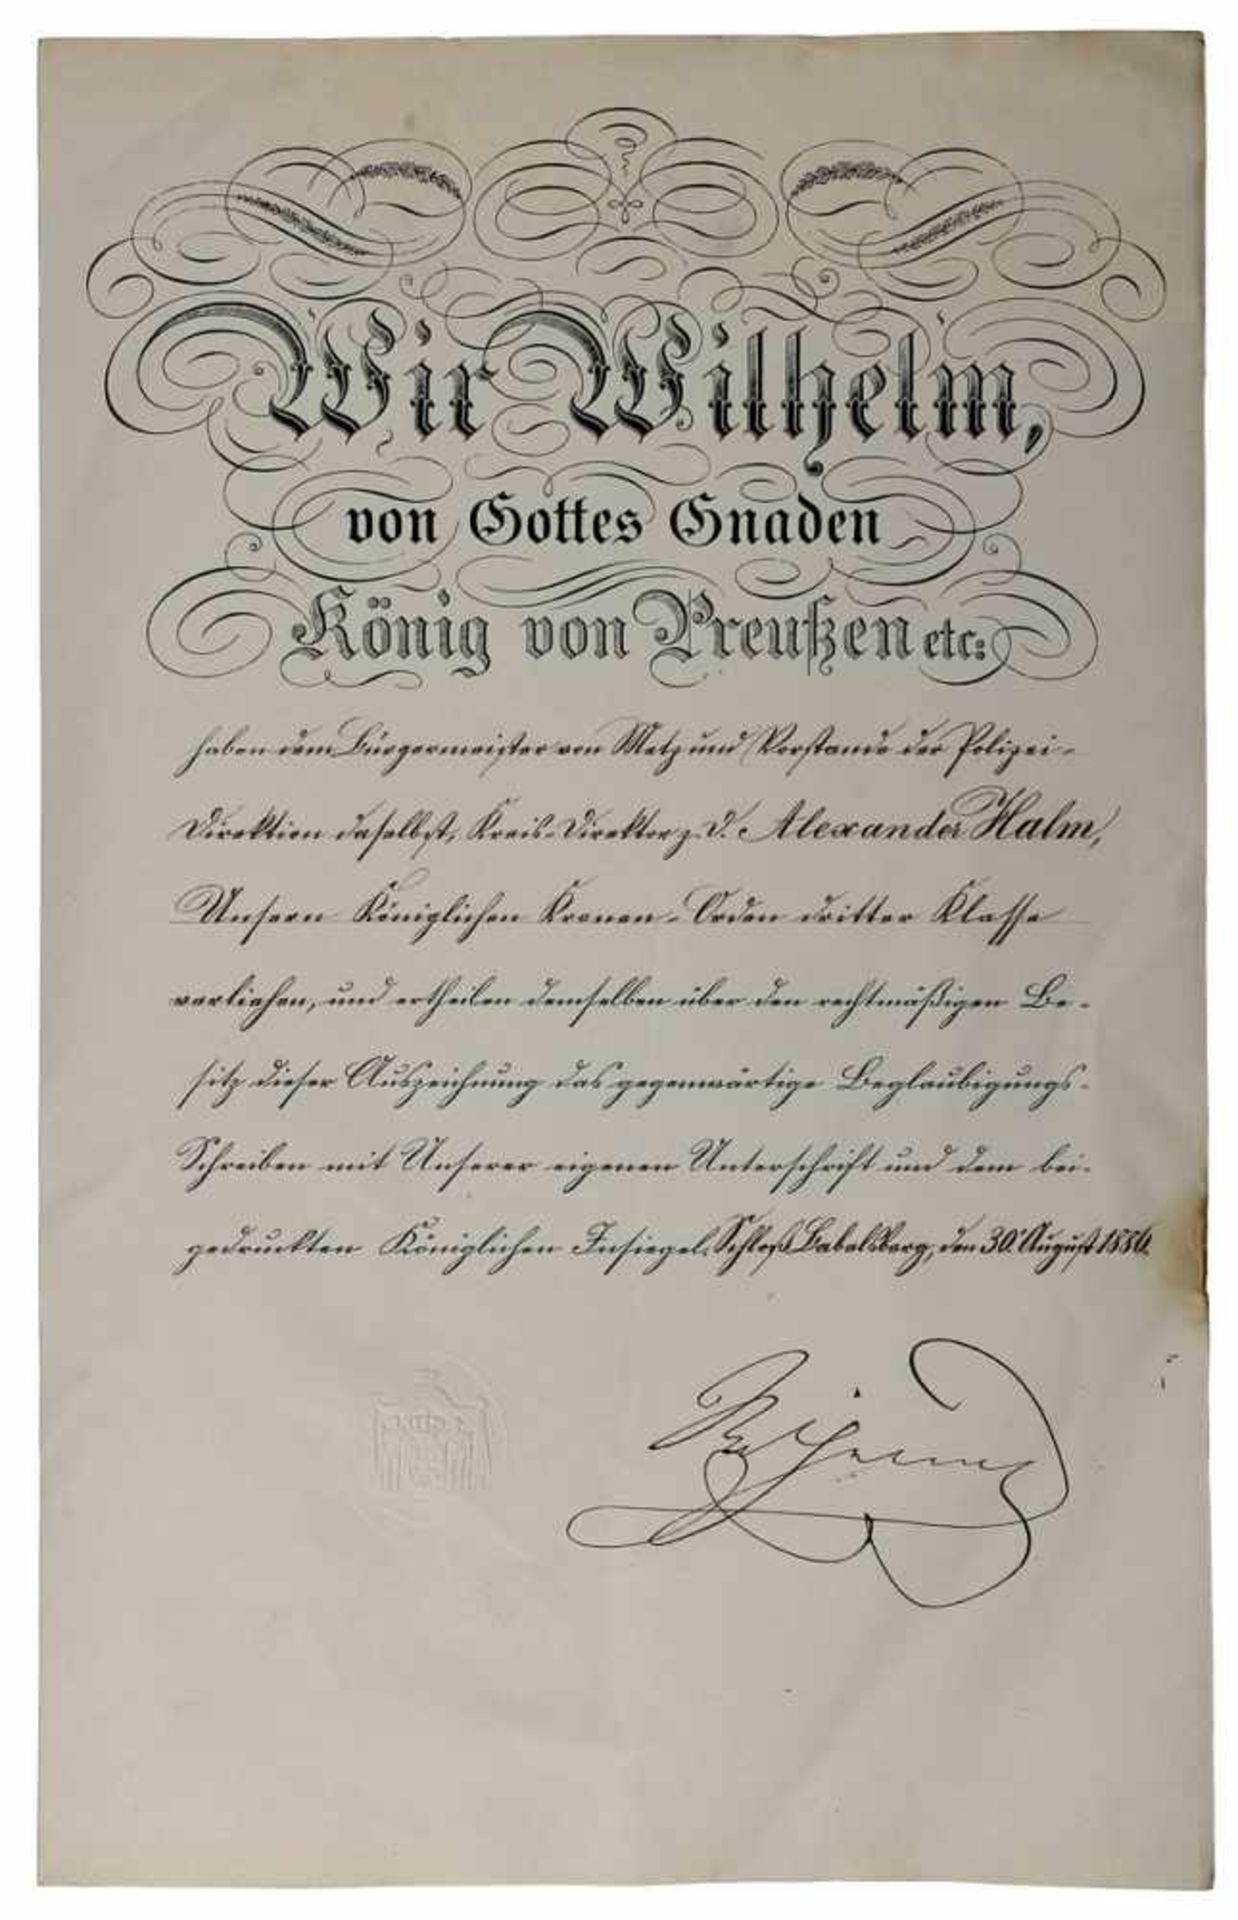 Wir Wilhelm,
von Gottes Gnaden
König von Preußen etc:
haben dem Bürgermeister von Metz und Vorstande der Polizei-
Direktion daselbst, Kreis-Direktor z. D. Alexander Halm,
Unsern Königlichen Kronen-Orden dritter Klasse
verliehen, und ertheilen demselben über den rechtmäßigen Be-
sitz dieser Auszeichnung das gegenwärtige Beglaubigungs-
Schreiben mit Unserer eigenen Unterschrift und dem bei-
gedruckten Königlichen Insiegel. Schloß Babelsberg, den 30. August 1886.
Wilhelm